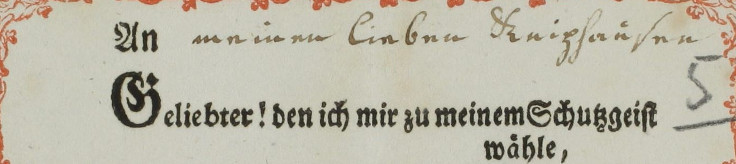 An meinen lieben Kniphausen
Geliebter! den ich mir zu meinem Schutzgeist
wähle,
5